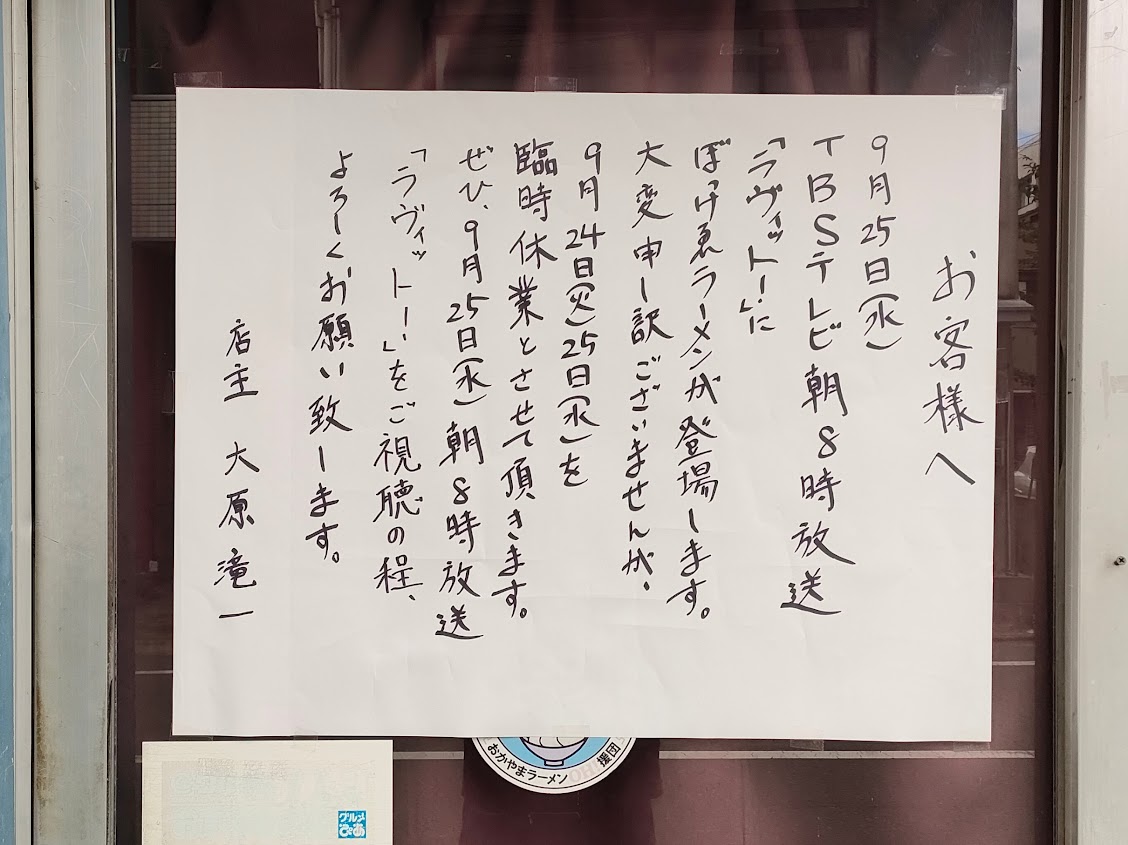 お客様へ
9月25日(水)
TBSテレビ朝8時放送
「ラヴィット!」に
ぼっけゑラーメンが登場します。
大変申し訳ございませんが、
9月24日(火)25日(水)を
臨時休業とさせて頂きます。
ぜひ、9月25日(水)朝8時放送
「ラヴィット!」をご視聴の程、
よろしくお願い致します。
店主 大原滝一
おかやまラーメン
援団
グルメ
ぴあ